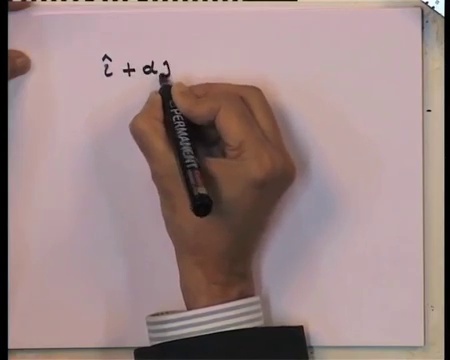 î + αj
PERMANENT